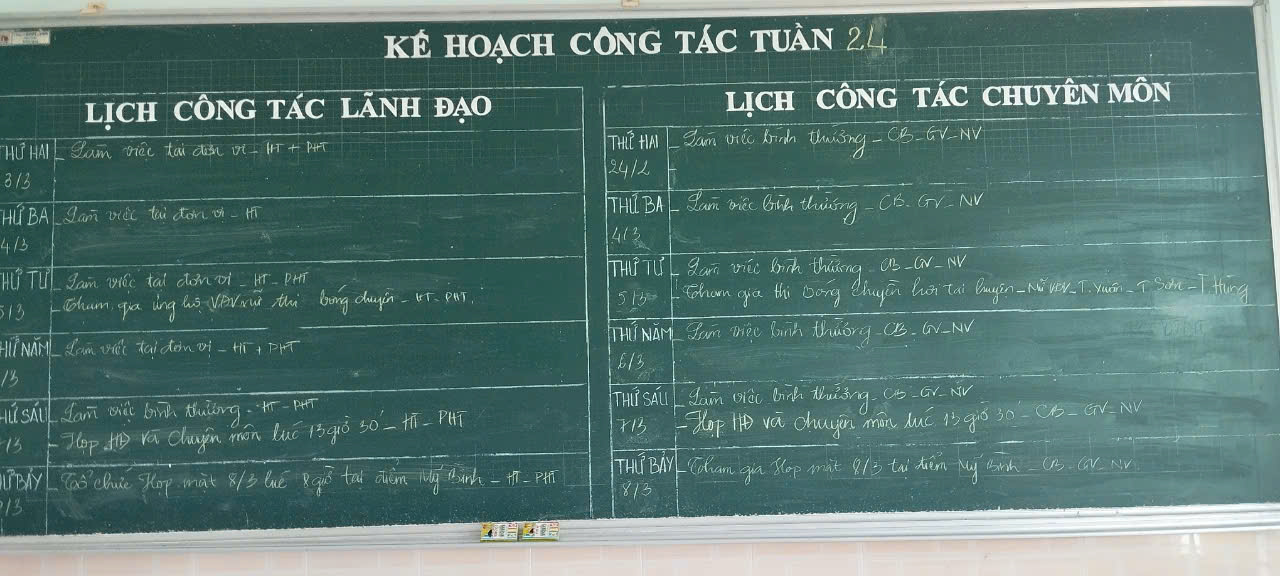 KẾ HOẠCH CÔNG TÁC TUẦN 24
LỊCH CÔNG TÁC LÃNH ĐẠO
THỨ HAI - Làm việc tại đơn vị - HT + PHT
3/3
THỨ BA - Làm việc tại đơn vị - HT
4/3
THỨ TƯ - Làm việc tại đơn vị - HT - PHT
5/3 - Tham gia ủng hộ VĐV nữ thi bóng chuyền - HT - PHT.
THỨ NĂM - Làm việc tại đơn vị - HT + PHT
/3
THỨ SÁU - Làm việc bình thường - HT - PHT
7/3 - Họp HĐ và chuyên môn lúc 13 giờ 30' - HT - PHT
THỨ BẢY - Tổ chức Họp mặt 8/3 lúc 8 giờ tại điểm Mỹ Bình - HT - PHT
/3
LỊCH CÔNG TÁC CHUYÊN MÔN
THỨ HAI - Làm việc bình thường - CB - GV - NV
24/2
THỨ BA - Làm việc bình thường - CB - GV - NV
4/3
THỨ TƯ - Làm việc bình thường - CB - GV - NV
5/3 - Tham gia thi bóng chuyền hơi tại huyện - Nữ VĐV - T. Xuân - T Sơn - T. Hùng
THỨ NĂM - Làm việc bình thường - CB - GV - NV
6/3
THỨ SÁU - Làm việc bình thường - CB - GV - NV
7/3 - Họp HĐ và chuyên môn lúc 13 giờ 30' - CB - GV - NV
THỨ BẢY - Tham gia Họp mặt 8/3 tại điểm Mỹ Bình - CB - GV - NV
8/3